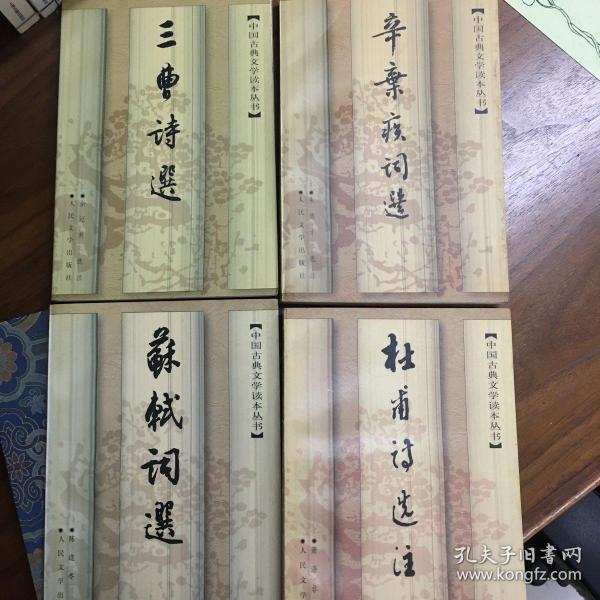 三曹诗選
【中国古典文学读本丛书】
●余冠英 选注
●人民文学出版社
辛棄疾词選
【中国古典文学读本丛书】
●人民文学出版社
蘇軾词選
【中国古典文学读本丛书】
●陈迩冬
●人民文学出
杜甫诗选注
【中国古典文学读本丛书】
●萧涤非
●人民文学
孔夫子旧書网
www.kongfz.com